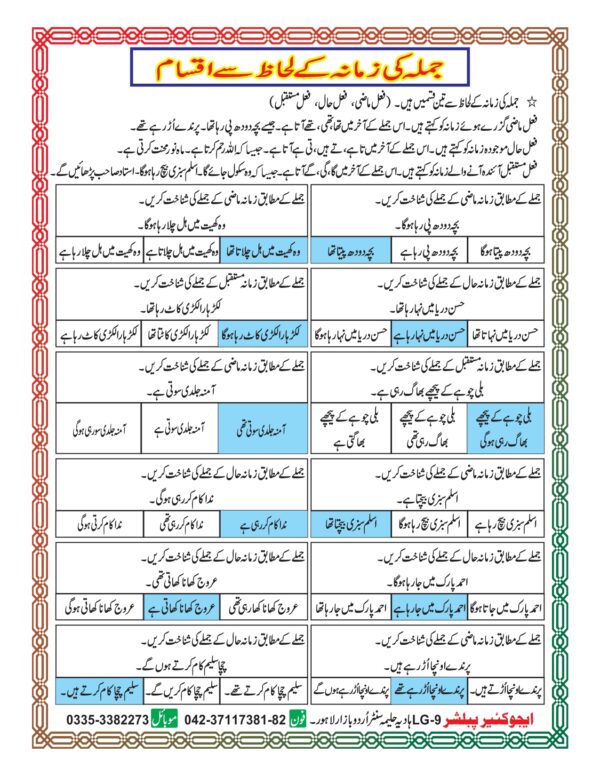 جملہ کی زمانہ کے لحاظ سے اقسام
☆ جملہ کی زمانہ کے لحاظ سے تین قسمیں ہیں۔ (فعل ماضی، فعل حال، فعل مستقبل)
فعل ماضی گزرے ہوئے زمانہ کو کہتے ہیں۔ اس جملے کے آخر میں تھا، تھی، تھے آتا ہے۔ جیسے بچہ دودھ پی رہا تھا۔ پرندے اُڑ رہے تھے۔
فعل حال موجودہ زمانہ کو کہتے ہیں۔ اس جملے کے آخر میں تا ہے، تے ہیں، تی ہے آتا ہے۔ جیسا کہ اللہ رحم کرتا ہے۔ ماہ نور محنت کرتی ہے۔
فعل مستقبل آئندہ آنے والے زمانہ کو کہتے ہیں۔ اس جملے کے آخر میں گا، گی، گے آتا ہے۔ جیسا کہ وہ سکول جائے گا۔ اسلم سبزی بیچ رہا ہوگا۔ استاد صاحب پڑھائیں گے۔
جملے کے مطابق زمانہ ماضی کے جملے کی شناخت کریں۔
بچہ دودھ پی رہا ہوگا۔
بچہ دودھ پیتا ہوگا
بچہ دودھ پی رہا ہے
بچہ دودھ پیتا تھا
جملے کے مطابق زمانہ ماضی کے جملے کی شناخت کریں۔
وہ کھیت میں ہل چلا رہا ہوگا۔
وہ کھیت میں ہل چلاتا تھا
وہ کھیت میں ہل چلاتا ہے
وہ کھیت میں ہل چلا رہا ہے
جملے کے مطابق زمانہ حال کے جملے کی شناخت کریں۔
حسن دریا میں نہا رہا تھا۔
حسن دریا میں نہاتا تھا
حسن دریا میں نہا رہا ہے
حسن دریا میں نہا رہا ہوگا
جملے کے مطابق زمانہ مستقبل کے جملے کی شناخت کریں۔
لکڑہارا لکڑی کاٹ رہا تھا۔
لکڑہارا لکڑی کاٹ رہا ہوگا
لکڑہارا لکڑی کاٹتا تھا
لکڑہارا لکڑی کاٹ رہا ہے
جملے کے مطابق زمانہ مستقبل کے جملے کی شناخت کریں۔
بلی چوہے کے پیچھے بھاگ رہی ہے۔
بلی چوہے کے پیچھے
بھاگ رہی ہوگی
بلی چوہے کے پیچھے
بھاگ رہی تھی
بلی چوہے کے پیچھے
بھاگتی ہے
جملے کے مطابق زمانہ ماضی کے جملے کی شناخت کریں۔
آمنہ جلدی سوتی ہے۔
آمنہ جلدی سوتی تھی
آمنہ جلدی سوتی ہے
آمنہ جلدی سو رہی ہوگی
جملے کے مطابق زمانہ ماضی کے جملے کی شناخت کریں۔
اسلم سبزی بیچتا ہے۔
اسلم سبزی بیچ رہا ہے
اسلم سبزی بیچ رہا ہوگا
اسلم سبزی بیچتا تھا
جملے کے مطابق زمانہ حال کے جملے کی شناخت کریں۔
ندا کام کر رہی ہوگی۔
ندا کام کر رہی ہے
ندا کام کر رہی تھی
ندا کام کرتی ہوگی
جملے کے مطابق زمانہ حال کے جملے کی شناخت کریں۔
احمد پارک میں جا رہا ہوگا۔
احمد پارک میں جاتا ہوگا
احمد پارک میں جا رہا ہے
احمد پارک میں جا رہا تھا
جملے کے مطابق زمانہ حال کے جملے کی شناخت کریں۔
عروج کھانا کھاتی تھی۔
عروج کھانا کھاتی ہے
عروج کھانا کھا رہی تھی
عروج کھانا کھاتی ہوگی
جملے کے مطابق زمانہ ماضی کے جملے کی شناخت کریں۔
پرندے اونچا اُڑ رہے ہیں۔
پرندے اونچا اُڑتے ہیں۔
پرندے اونچا اُڑ رہے تھے
پرندے اونچا اُڑ رہے ہوں گے
جملے کے مطابق زمانہ حال کے جملے کی شناخت کریں۔
چچا سلیم کام کرتے ہوں گے۔
سلیم چچا کام کرتے تھے۔
سلیم چچا کام کریں گے۔
سلیم چچا کام کرتے ہیں۔
ایجوکنیر پبلشر LG-9 ہادیہ حلیمہ سنٹر اُردو بازار لاہور۔ فون 042-37117381-82 موبائل 0335-3382273